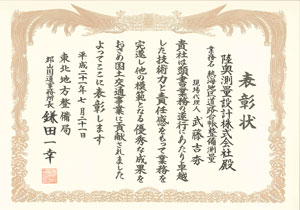 表彰状
陸奥測量設計株式会社殿
業務名 熱海地区道路台帳整備測量
現場代理人 武藤吉夯
貴社は頭書業務の遂行にあたり卓越
した技術力と責任感をもって業務を
完遂し他の模範たなる優秀な成果を
おさめ国土交通事業に貢献されました
よってここに表彰します
平成二十一年七月二十一日
東北地方整備局
郡山国道事務所長
鎌田一幸